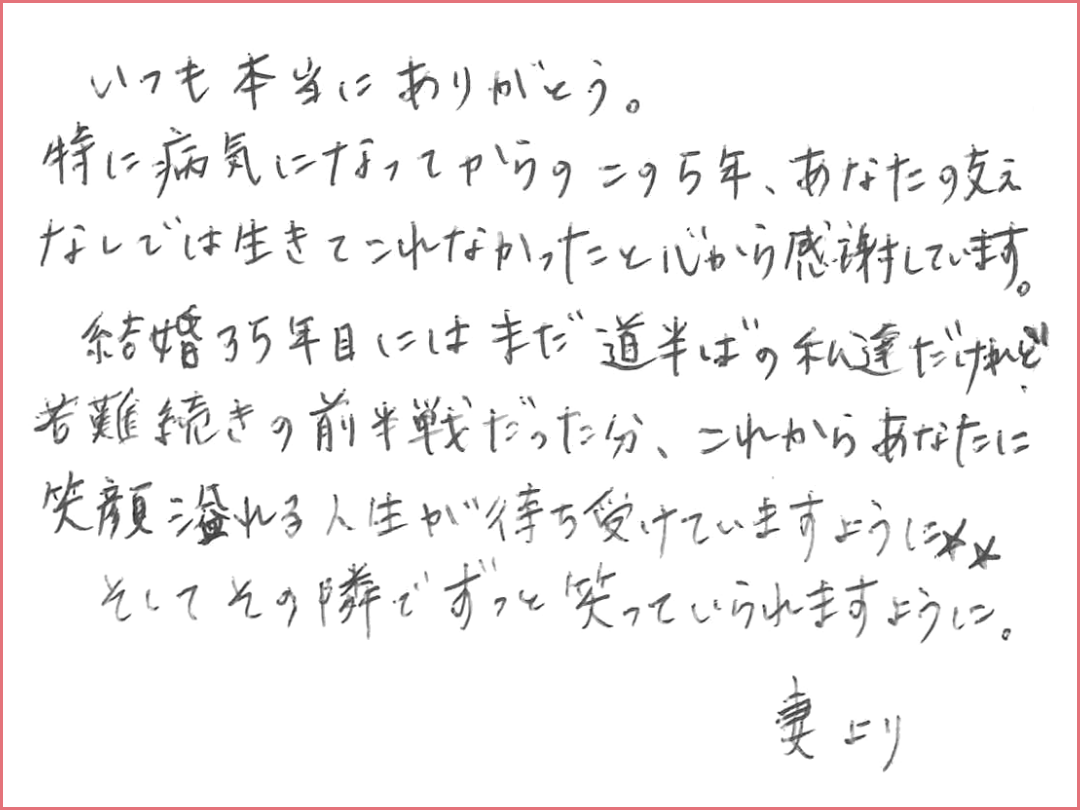 いつも本当にありがとう。
特に病気になってからのこの5年、あなたの支え
なしでは生きてこれなかったと心から感謝しています。
結婚35年目にはまだ道半ばの私達だけれど
苦難続きの前半戦だった分、これからあなたに
笑顔溢れる人生が待ち受けていますように☆☆
そしてその隣でずっと笑っていられますように。
妻より